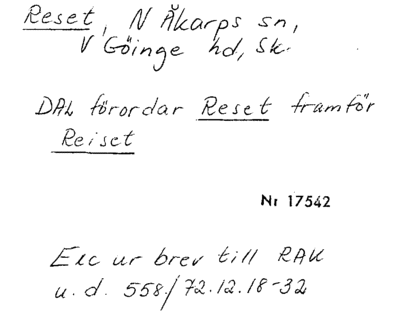 Reset, N Åkarps sn,
V Göinge hd, Sk.
DAL förordar Reset framför
Reiset
Nr 17542
Exc ur brev till RAK
u.d. 558/72.12.18-32